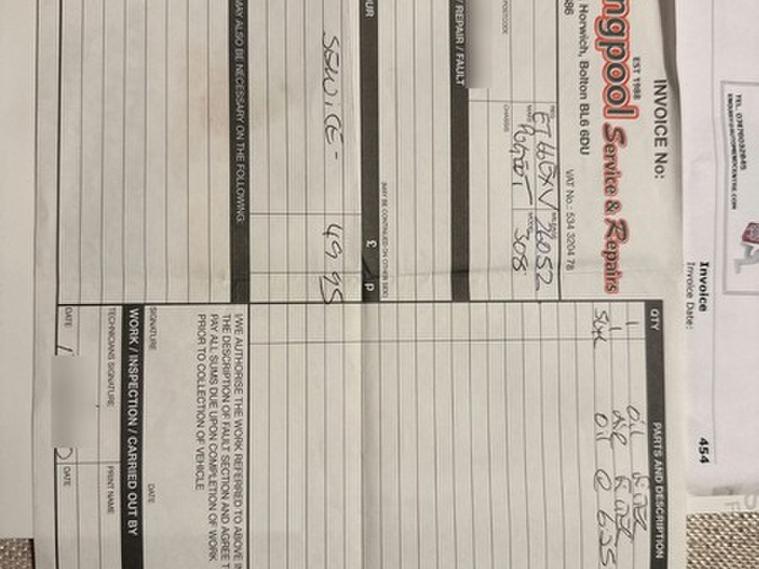 INVOICE No:
EST 1988
ngpool Service & Repairs
Horwich, Bolton BL6 6DU
VAT No.: 534 3204 78
REG.
MILEAGE
26052
MAKE
MODEL
308
CHASSIS
POSTCODE
/ REPAIR / FAULT
(MAY BE CONTINUED ON OTHER SIDE)
OUR
£
p
SERVICE - 49.95
MAY ALSO BE NECESSARY ON THE FOLLOWING:
QTY
PARTS AND DESCRIPTION
1 Oil Filter
1 Air Filter
Oil @ 6.25
I/WE AUTHORISE THE WORK REFERRED TO ABOVE IN
THE DESCRIPTION OF FAULT SECTION AND AGREE T
PAY ALL SUMS DUE UPON COMPLETION OF WORK
PRIOR TO COLLECTION OF VEHICLE
SIGNATURE
DATE
WORK / INSPECTION / CARRIED OUT BY
TECHNICIANS SIGNATURE
PRINT NAME
DATE
DATE
Invoice 454
Invoice Date: